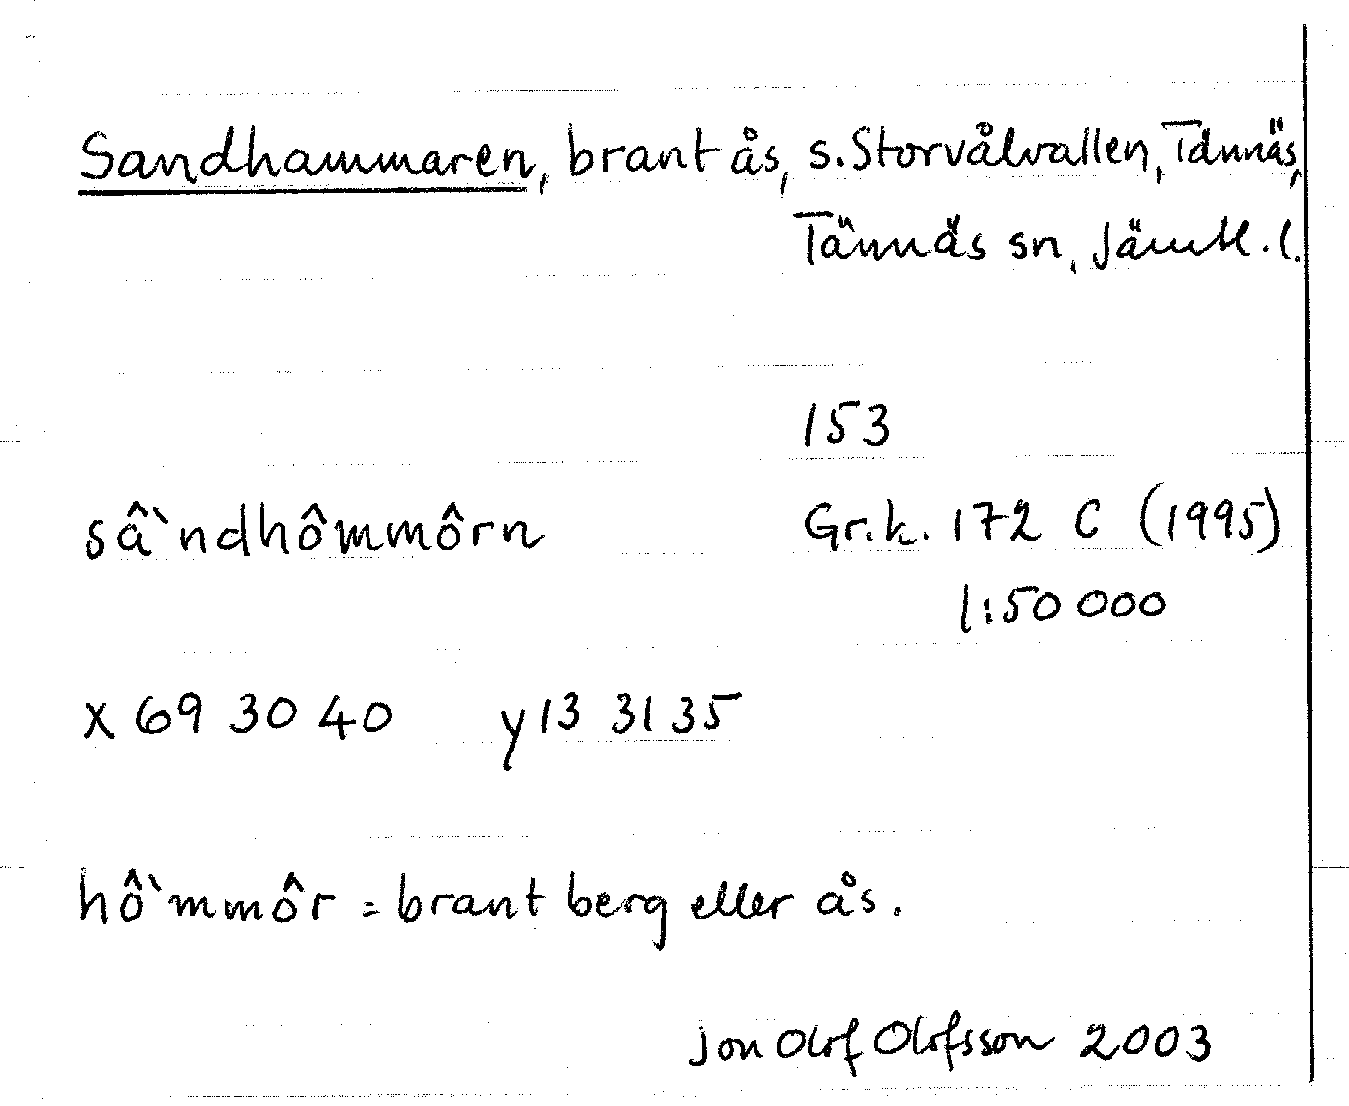 Sandhammaren, brant ås, s. Storvålvallen, Tännäs,
Tännäs sn, Jämtl. l.
153
sâ`ndhômmôrn Gr.k. 172 C (1995)
1:50 000
x 69 30 40 y 13 31 35
hô`mmôr = brant berg eller ås.
Jon Olof Olofsson 2003